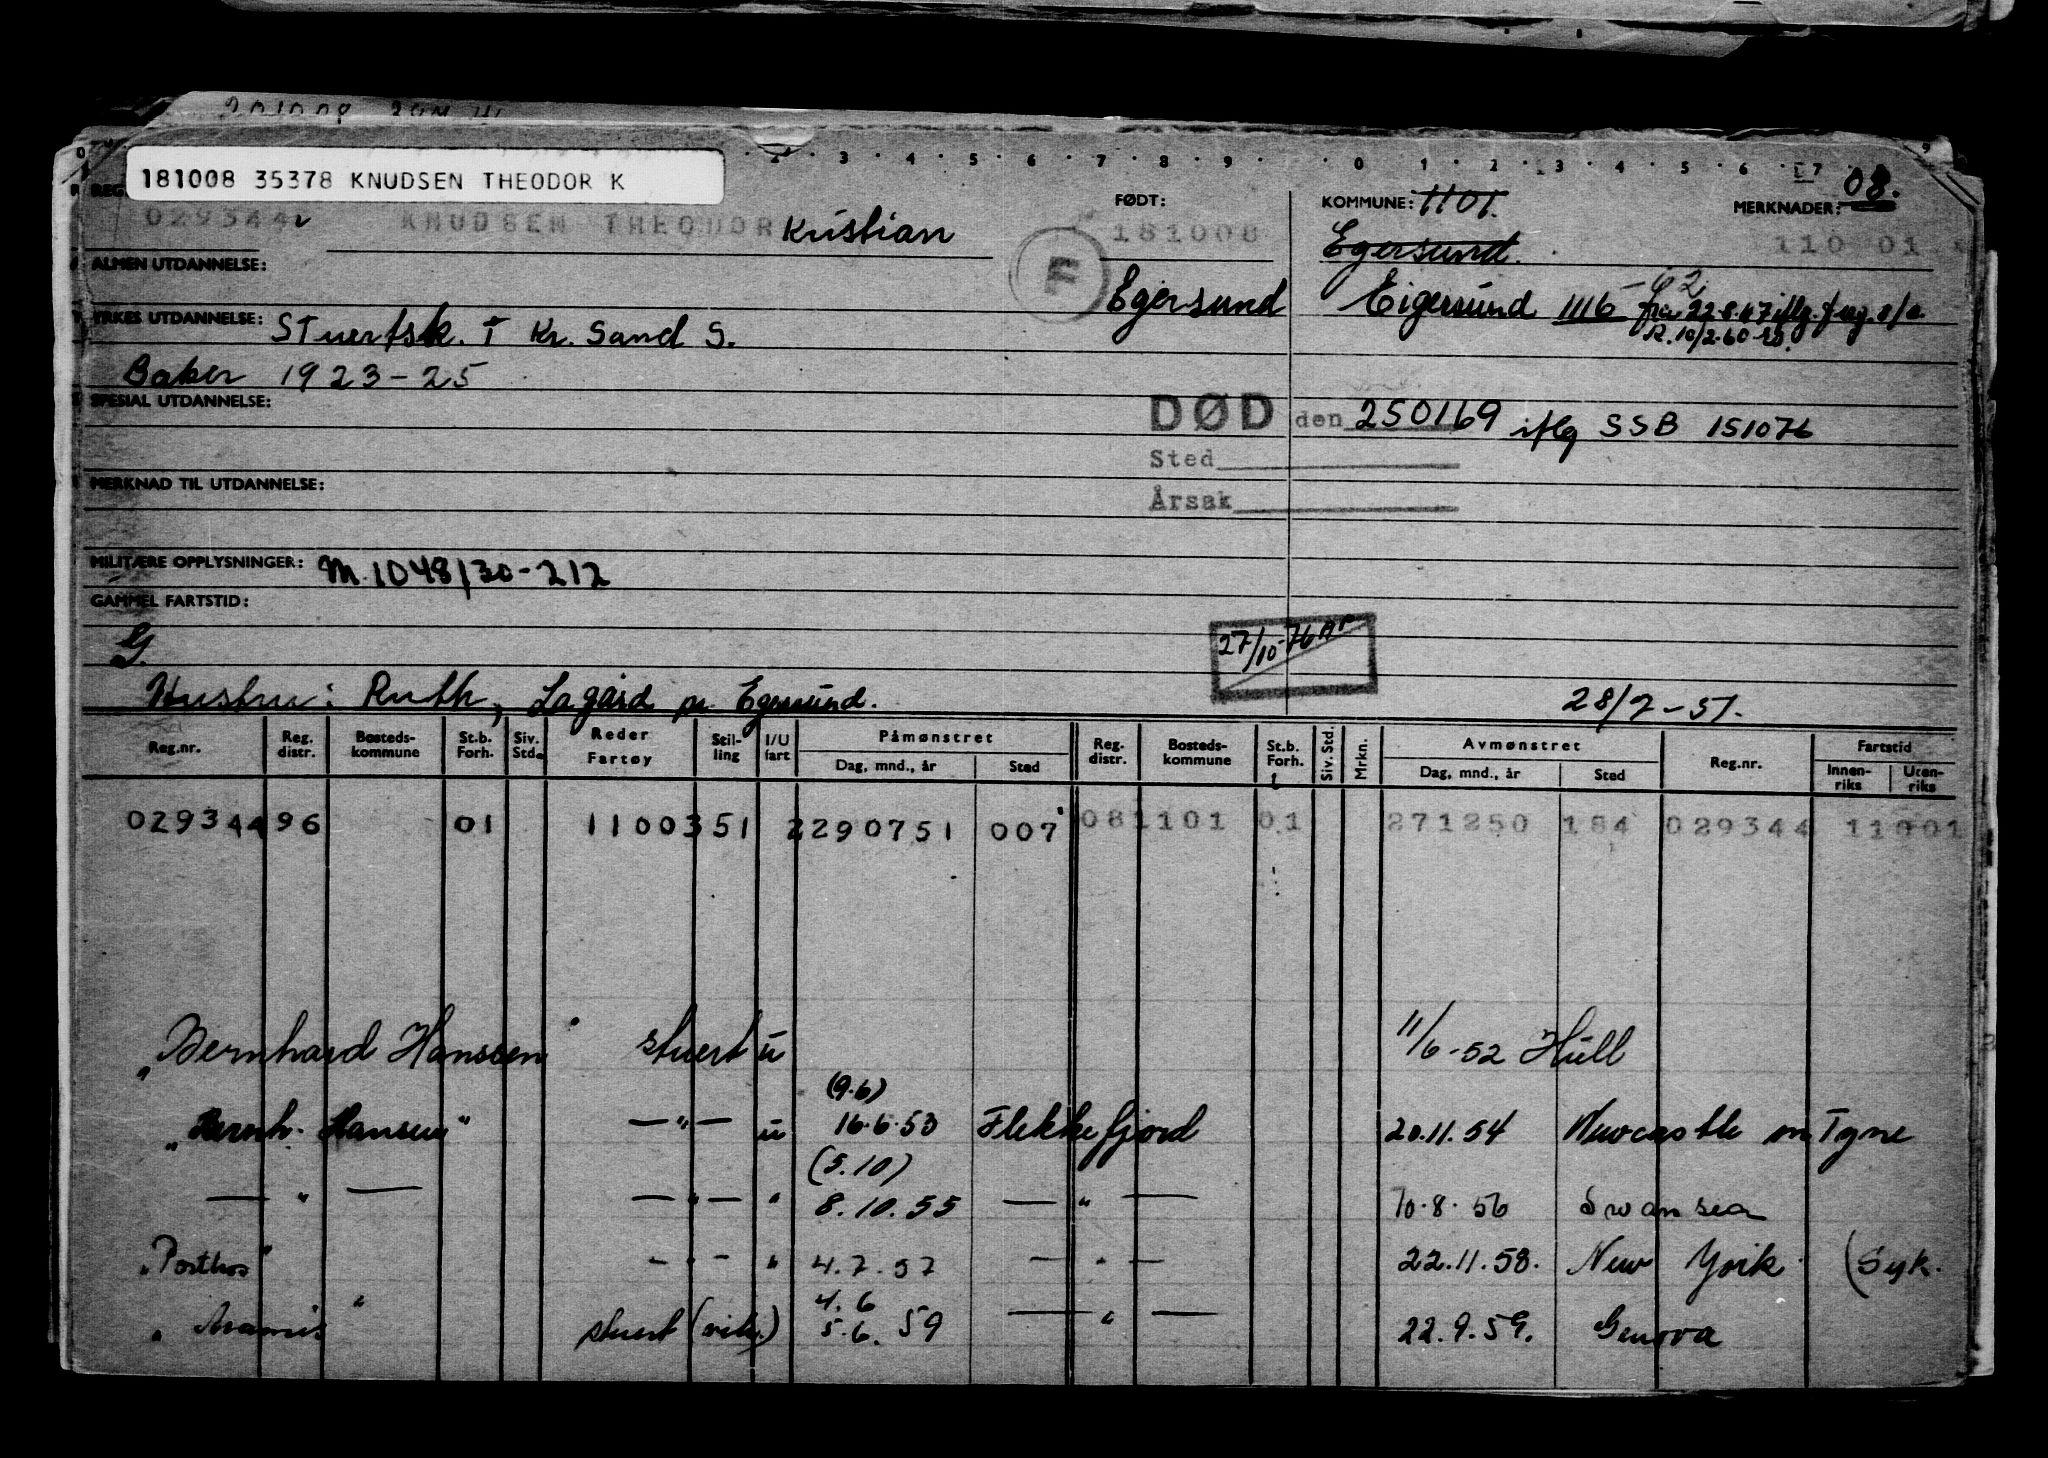 181008 35378 KNUDSEN THEODOR K
FØDT:
KOMMUNE: 1101.
MERKNADER: 08.
029344 KNUDSEN THEODOR Kristian
F
181008
Egersund.
110 01
ALMEN UTDANNELSE:
Egersund
Eigersund 1116 fra 22.8.47
R. 10/2.60
YRKES UTDANNELSE: Stuertsk. i Kr. Sand S.
Baker 1923-25
SPESIAL UTDANNELSE:
DØD den 250169 iflg SSB 151076
Sted
Årsak
MERKNAD TIL UTDANNELSE:
MILITÆRE OPPLYSNINGER: M. 1048/30-212
GAMMEL FARTSTID:
G.
27/10-76
Hustru: Ruth, Lagård pr. Egersund.
28/7-51.
Reg.nr. Reg. distr. Bosteds-kommune St.b. Forh. Siv. Std. Reder Fartøy Stil-ling I/U fart Påmønstret Dag, mnd., år Sted Reg. distr. Bosteds-kommune St.b. Forh. Siv. Std. Mrkn. Avmønstret Dag, mnd., år Sted Reg.nr. Fartstid Innen-riks Uten-riks
029344 96 01 11003 51 2 290751 007 08 1101 01 271250 184 029344 11001
"Bernhard Hanssen" stuert u 11/6-52 Hull
(9.6)
"Bernh. Hansen" —"— u 16.6.53 Flekkefjord 20.11.54 Newcastle on Tyne
(5.10)
— " — — " — " 8.10.55 — " — 10.8.56 Swansea
"Porthos" — " — " 4.7.57 — " — 22.11.58. New York (Syk.
4.6
"Aramis" stuert (vik.) 5.6.59 — " — 22.9.59. Genova